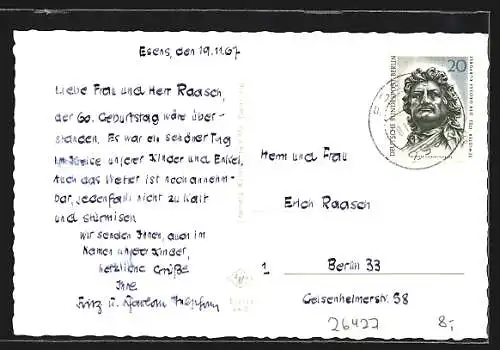 Esens, den 19.11.67
Liebe Frau und Herr Raasch,
der 60. Geburtstag wäre über-
standen. Es war ein schöner Tag
im Kreise unserer Kinder und Enkel.
Auch das Wetter ist noch annehm-
bar, jedenfalls nicht zu kalt
und stürmisch
Wir senden Ihnen, auch im
Namen unserer Kinder,
herzliche Grüße
Ihre
Fritz u.
DEUTSCHE BUNDESPOST BERLIN
20
Herrn und Frau
Erich Raasch
1 Berlin 33
Geisenheimerstr. 38
26427 8,-